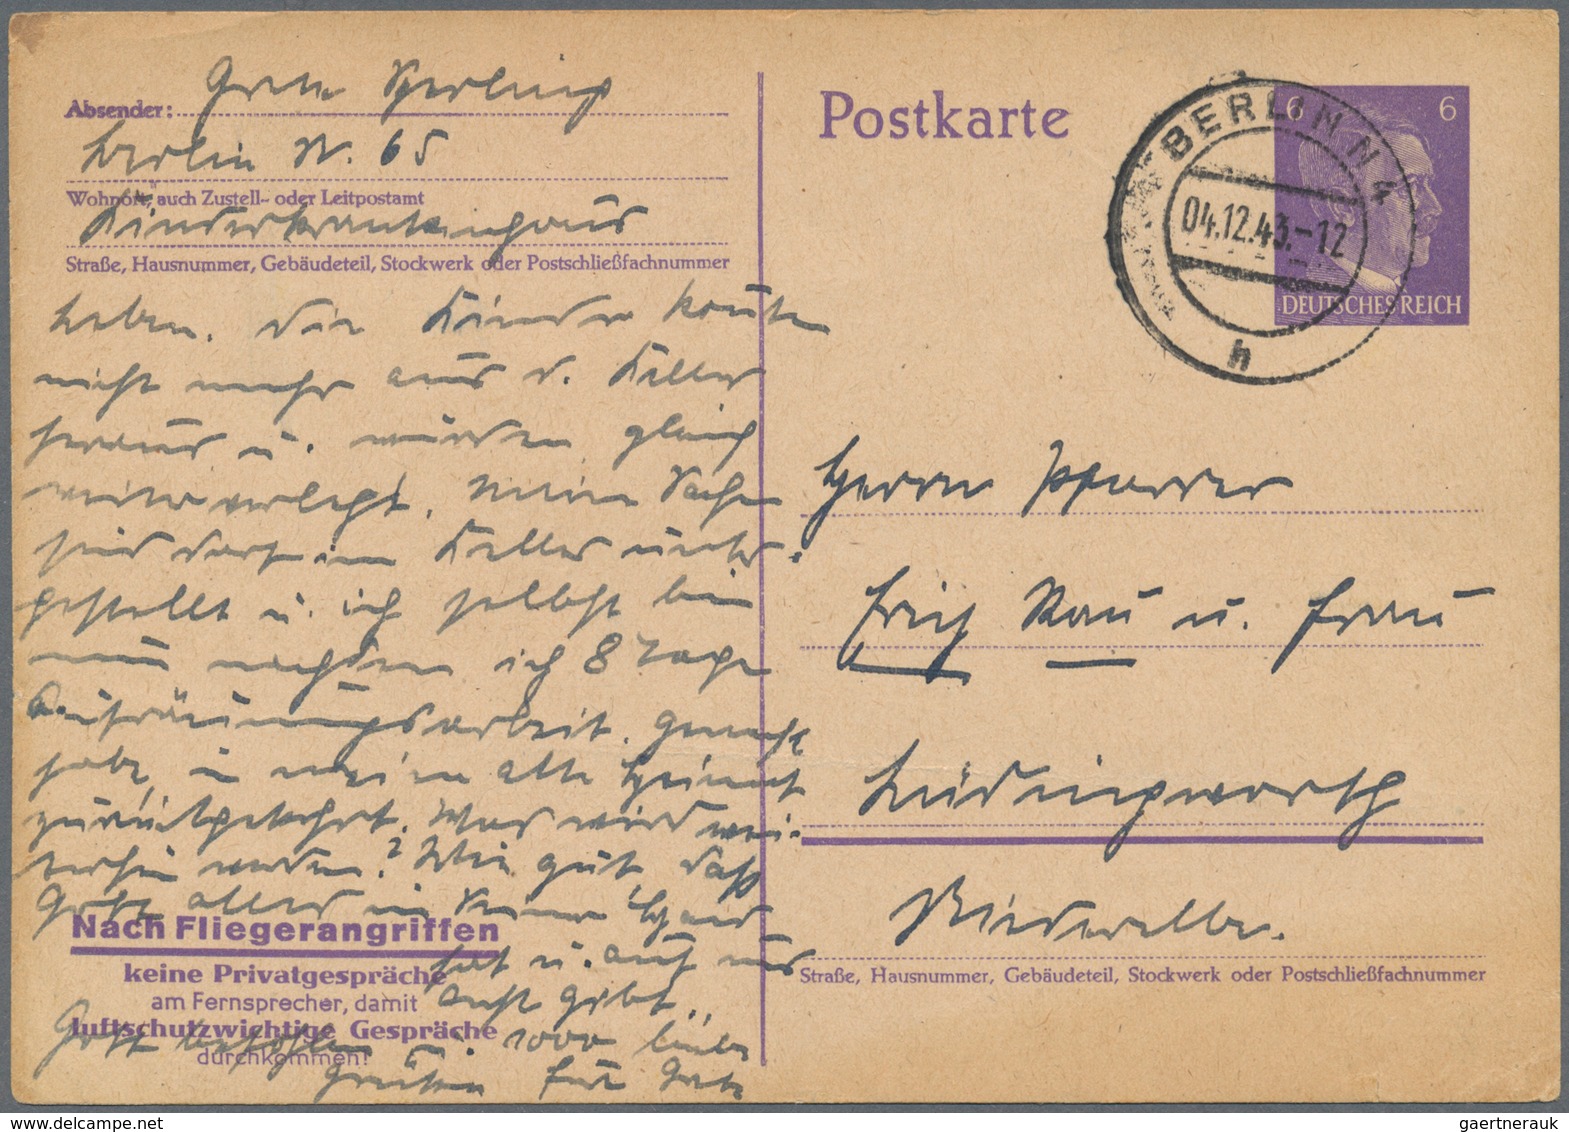 Absender: Grete Sperling
Berlin N. 65
Wohnort, auch Zustell- oder Leitpostamt
Kinderkrankenhaus
Straße, Hausnummer, Gebäudeteil, Stockwerk oder Postschließfachnummer
leben. Die Kinder konnten
nicht mehr aus d. Keller
heraus u. wurden gleich
weiter verlegt. Meine Sachen
sind dort im Keller unter-
gestellt u. ich selbst bin
nun nachdem ich 8 Tage
Aufräumungsarbeit gemacht
habe, in meine alte Heimat
zurückgekehrt. Was wird wei-
terhin werden? Wie gut, daß
Gott alles in Seiner Hand
hat u. auf uns
acht gibt.
Gott befohlen u. 1000 liebe
Grüße Eure Grete
Nach Fliegerangriffen
keine Privatgespräche
am Fernsprecher, damit
luftschutzwichtige Gespräche
durchkommen!
Postkarte
BERLIN N 4
04.12.43.-12
h
6 6
DEUTSCHES REICH
Herrn Pfarrer
Erich Rau u. Frau
Lüdingworth
Niederelbe.
Straße, Hausnummer, Gebäudeteil, Stockwerk oder Postschließfachnummer
gaertnerauk @ delcampe.net